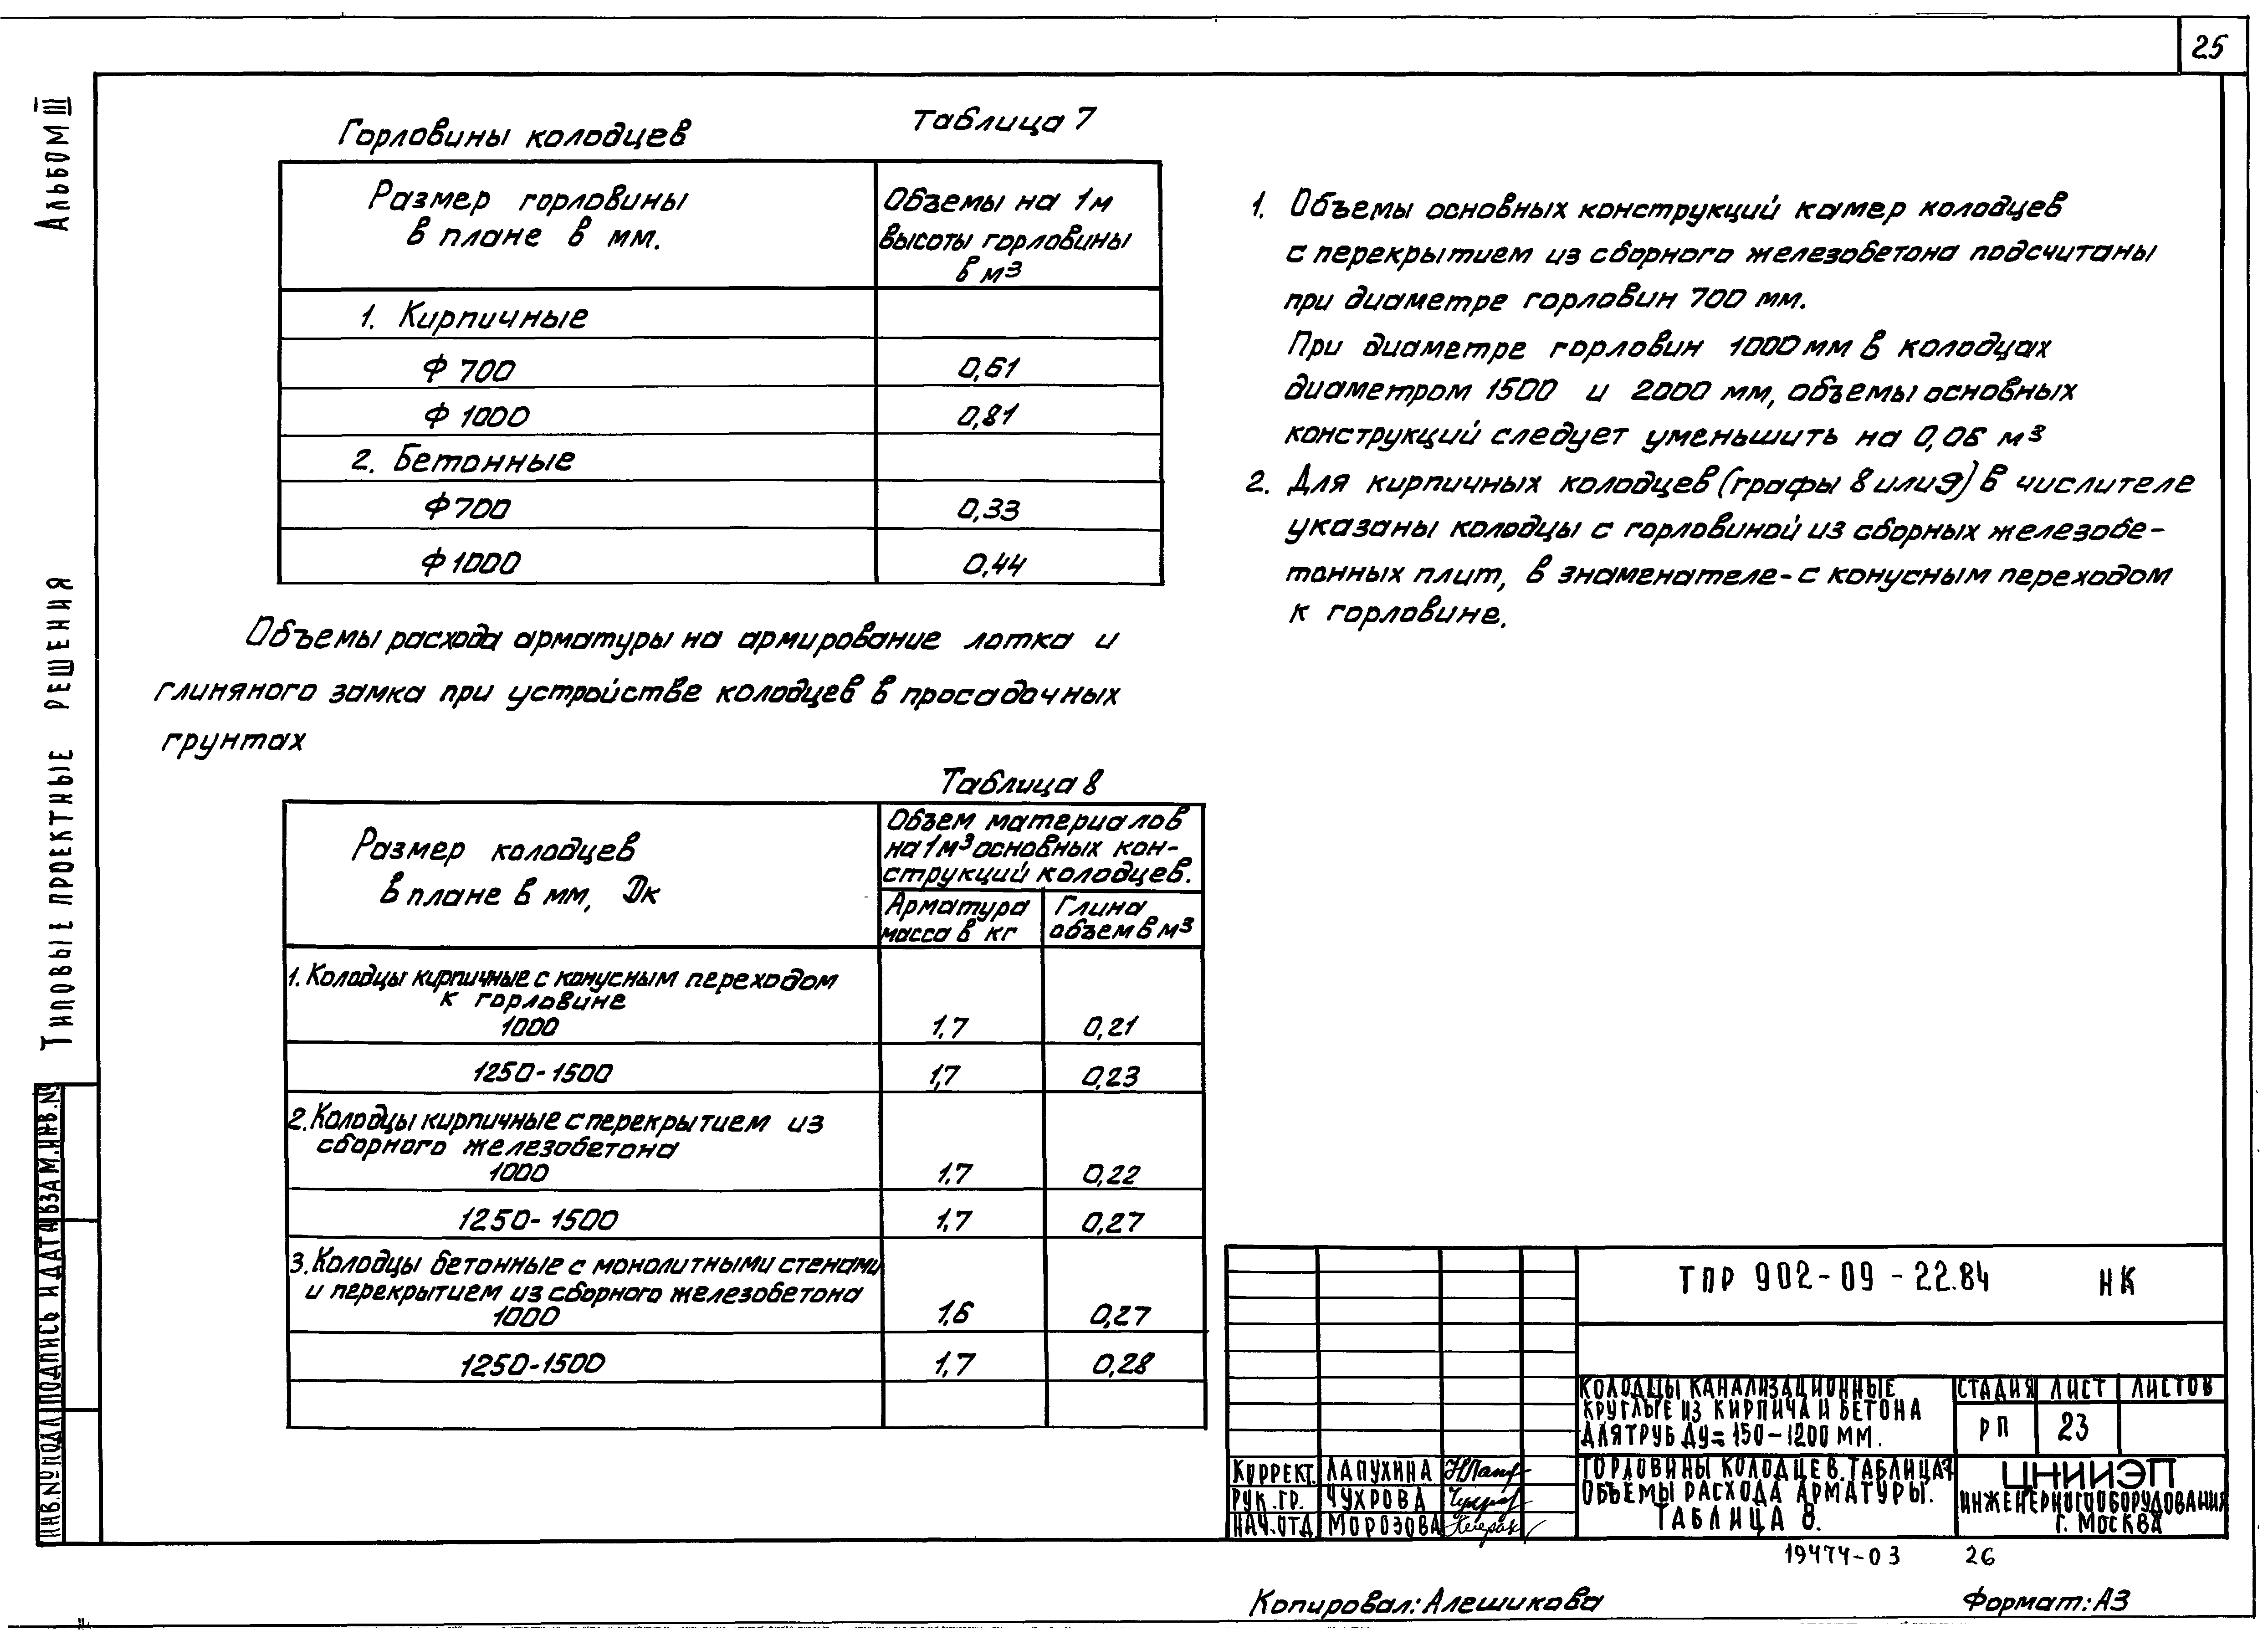 25
Альбом III
Типовые проектные решения
Горловины колодцев
Таблица 7
Размер горловины
в плане в мм.
Объемы на 1м
высоты горловины
в м³
1. Кирпичные
Ф 700 0,61
Ф 1000 0,81
2. Бетонные
Ф 700 0,33
Ф 1000 0,44
Объемы расхода арматуры на армирование лотка и
глиняного замка при устройстве колодцев в просадочных
грунтах
Таблица 8
Размер колодцев
в плане в мм, Dк
Объем материалов
на 1м³ основных кон-
струкций колодцев.
Арматура
масса в кг
Глина
объем в м³
1. Колодцы кирпичные с конусным переходом
к горловине
1000 1,7 0,21
1250-1500 1,7 0,23
2. Колодцы кирпичные с перекрытием из
сборного железобетона
1000 1,7 0,22
1250-1500 1,7 0,27
3. Колодцы бетонные с монолитными стенами
и перекрытием из сборного железобетона
1000 1,6 0,27
1250-1500 1,7 0,28
1. Объемы основных конструкций камер колодцев
с перекрытием из сборного железобетона подсчитаны
при диаметре горловин 700 мм.
При диаметре горловин 1000 мм в колодцах
диаметром 1500 и 2000 мм, объемы основных
конструкций следует уменьшить на 0,06 м³
2. Для кирпичных колодцев (графы 8 или 9) в числителе
указаны колодцы с горловиной из сборных железобе-
тонных плит, в знаменателе - с конусным переходом
к горловине.
ТПР 902-09-22.84 НК
Колодцы канализационные
круглые из кирпича и бетона
для труб Ду = 150-1200 мм.
Стадия Лист Листов
РП 23
Коррект. Лапухина
Рук. гр. Чухрова
Нач. отд Морозова
Горловины колодцев. Таблица 7
Объемы расхода арматуры.
Таблица 8.
ЦНИИЭП
инженерного оборудования
г. Москва
19474-03 26
Копировал: Алешикова
Формат: А3
Инв. № подл Подпись и дата Взам. инв. №